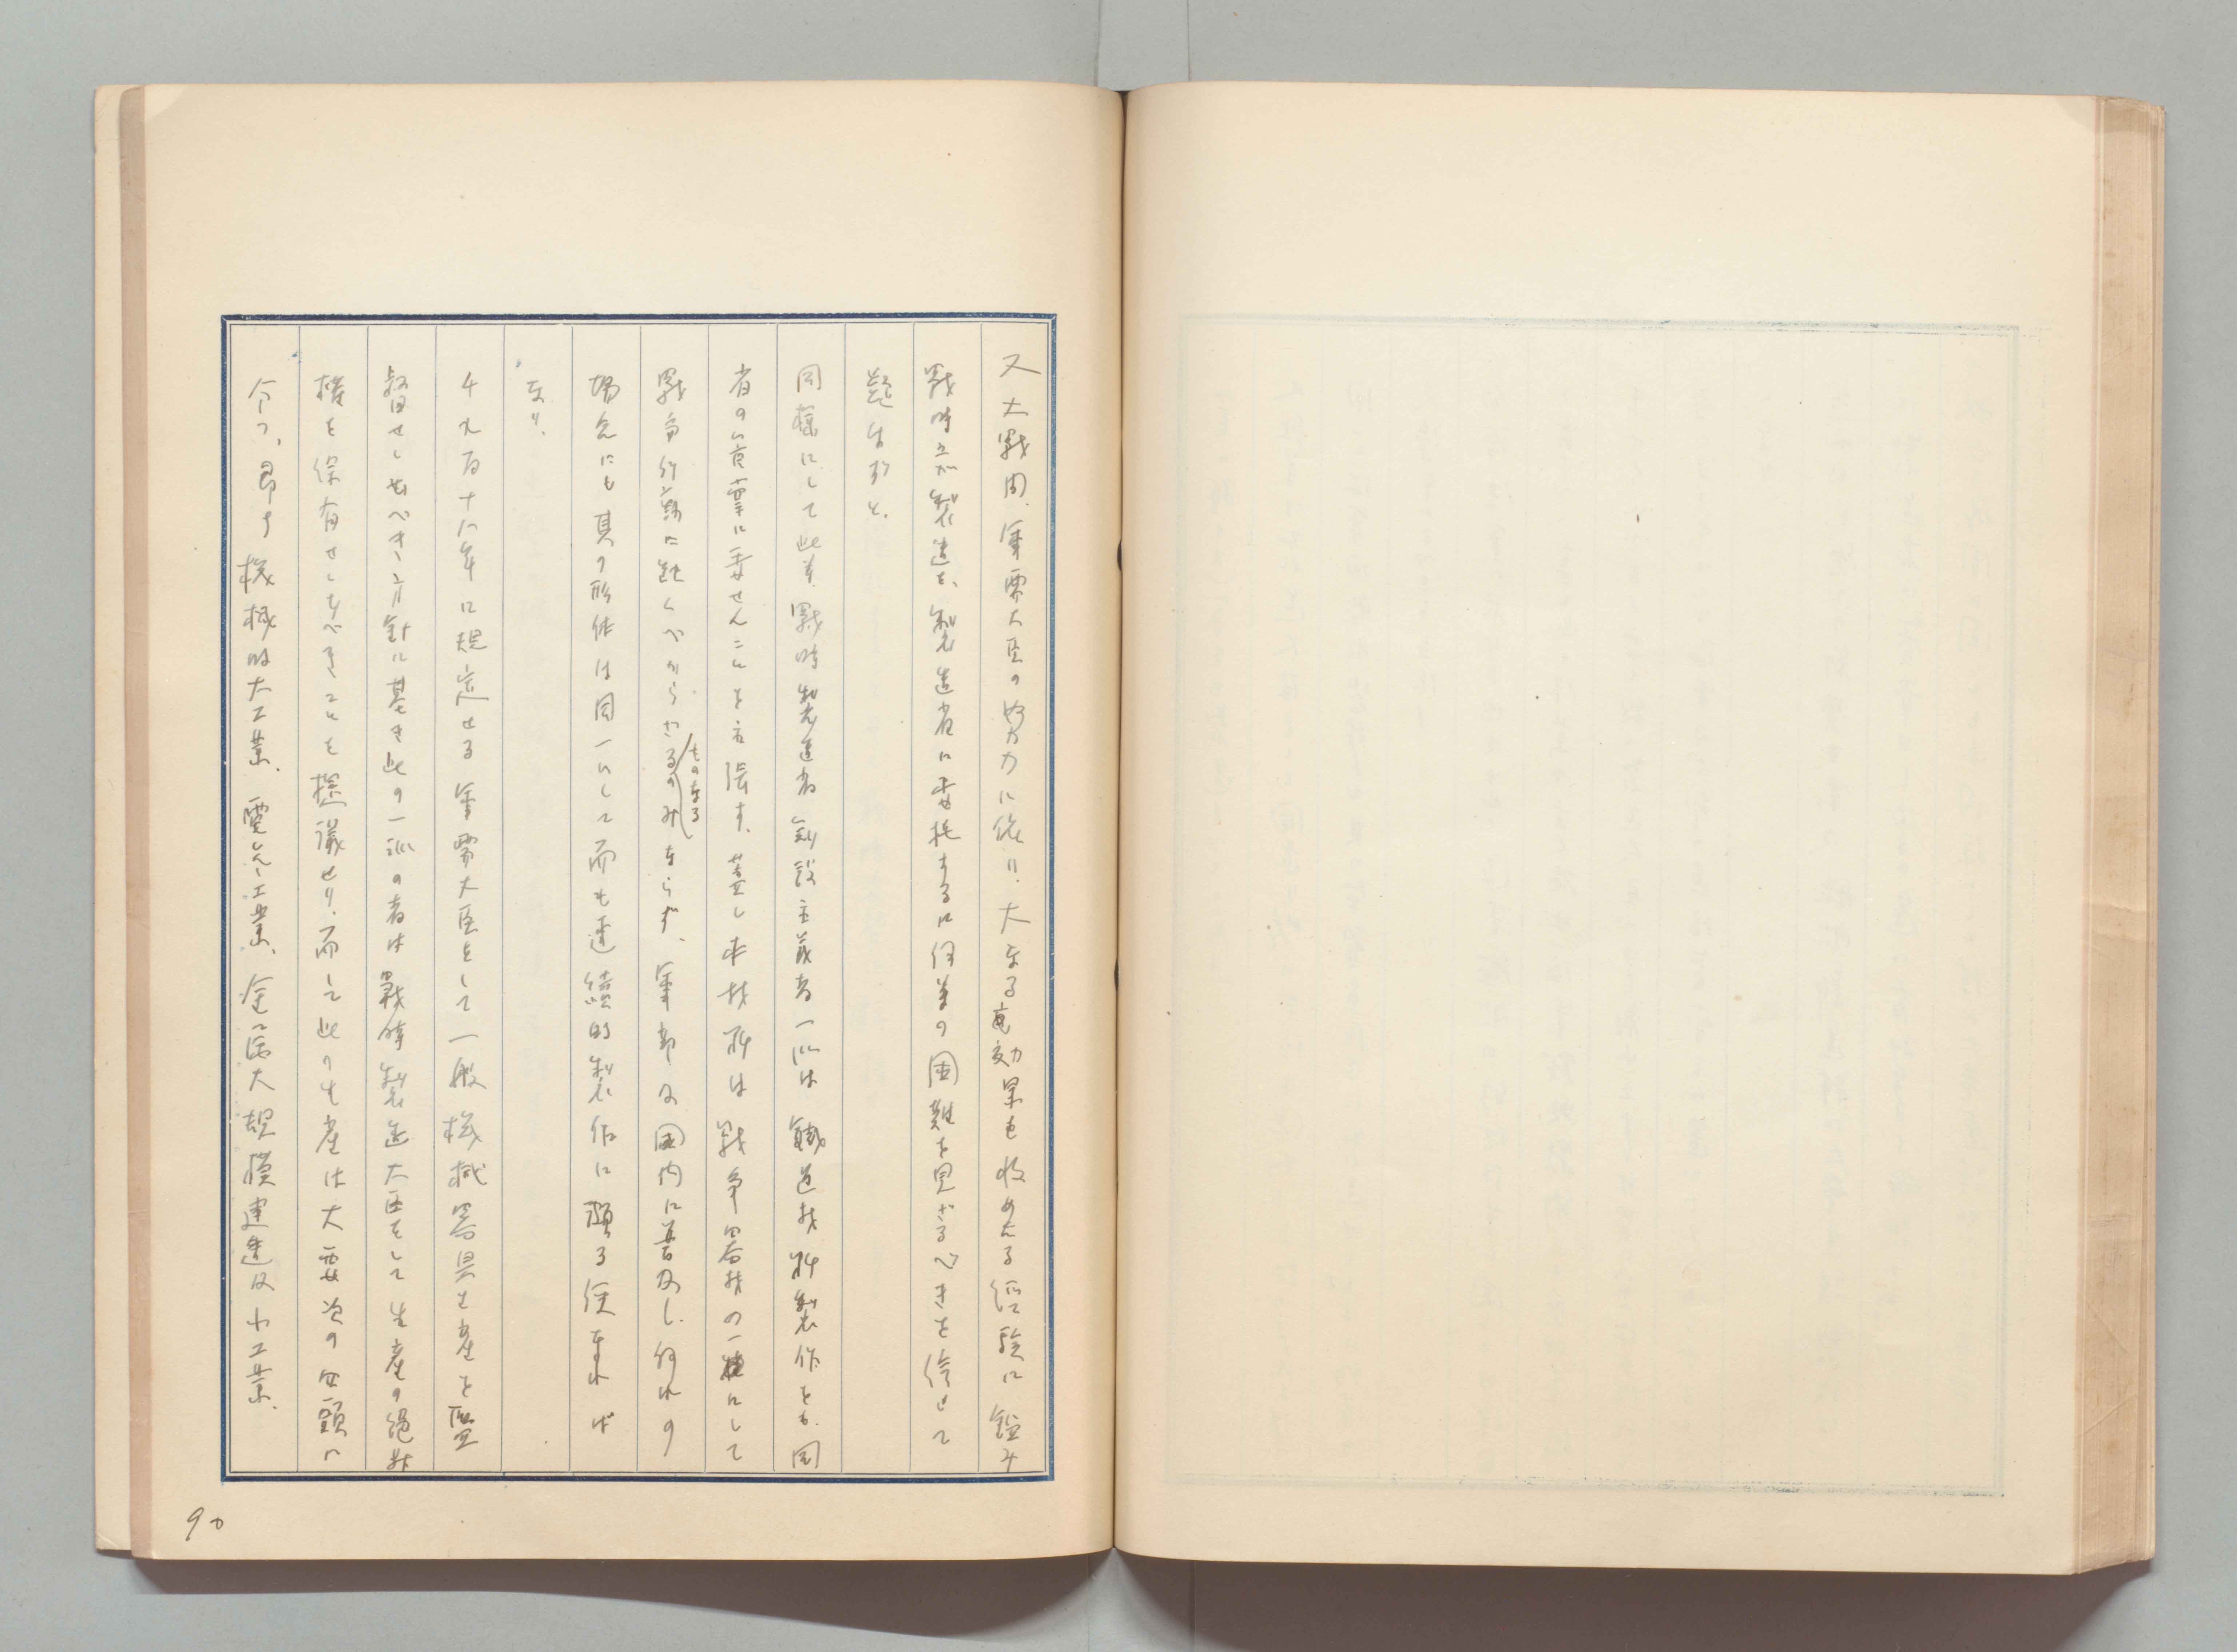 又大戰間、軍需大臣の努力に依り、大なる効果を收めたる經驗に鑑み
戰時之が製造を、製造省に委托するに何等の困難を見ざるべきを信じて
疑はずと。
同樣にして此等、戰時製造省創設主義者一派は鐵道材料製作をも、同
省の管掌に委せんことを主張す、蓋し本材料は戰爭器材の一種にして
戰爭行爲に缺くべからざるのみならず、軍部及国内に普及し、何れの
ものなる
場合にも其の形体は同一にして而も連續的製作に頼る仕事なれば
なり。
千九百十六年に規定せる軍需大臣をして一般機械器具生産を監
督せしむべき方針に基き此の一派の者は戰時製造大臣をして生産の絕對
權を保有せしむべきことを提議せり、而して此の生産は大要次の四類に
分つ、即ち機械的大工業、電気工業、金属大規模建造及小工業、
90